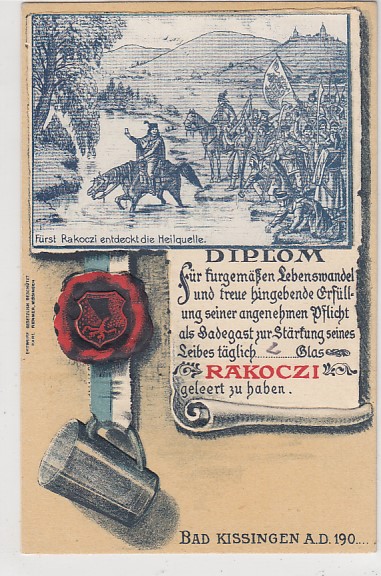 Fürst Rakoczi entdeckt die Heilquelle.
DIPLOM
Für kurgemäßen Lebenswandel
und treue hingebende Erfül-
lung seiner angenehmen Pflicht
als Badegast zur Stärkung seines
Leibes täglich 2 Glas
RAKOCZI
geleert zu haben.
BAD KISSINGEN A.D. 190....